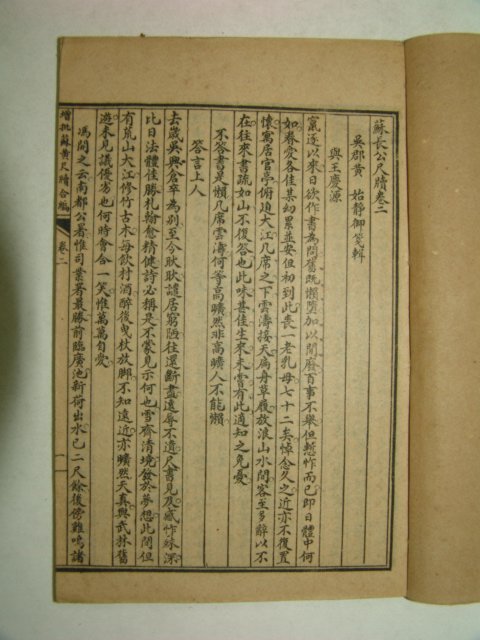 蘇長公尺牘卷二
吳郡黃　始靜御箋輯
與王慶源
竄逐以來日欲作書為問舊既懶墮加以閒廢百事不舉但慙怍而已即日體中何
如眷愛各佳某幼累並安但初到此喪一老乳母七十二矣悼念久之近亦不復置
懷寓居官亭俯迫大江几席之下雲濤接天扁舟草履放浪山水間客至多辭以不
在往來書疏如山不復答也此味甚佳生來未嘗有此適知之免憂
不答書是懶几席雲濤何等高曠然非高曠人不能懶
答言上人
去歲吳興倉卒為別至今耿耿譴居窮陋往還斷盡遠辱不遺尺書見及感怍殊深
比日法體佳勝札翰愈精健詩必稱是不蒙見示何也雪齋清境發於夢想此間但
有荒山大江修竹古木每飲村酒醉後曳杖放腳不知遠近亦曠然天真與武林舊
遊未見議優劣也何時會合一笑惟萬萬自愛
馮聞之云南都公署惟司業署最勝前臨廣池新荷出水已二尺餘後傍雞鳴諸
增批蘇黃尺牘合編
卷二
一